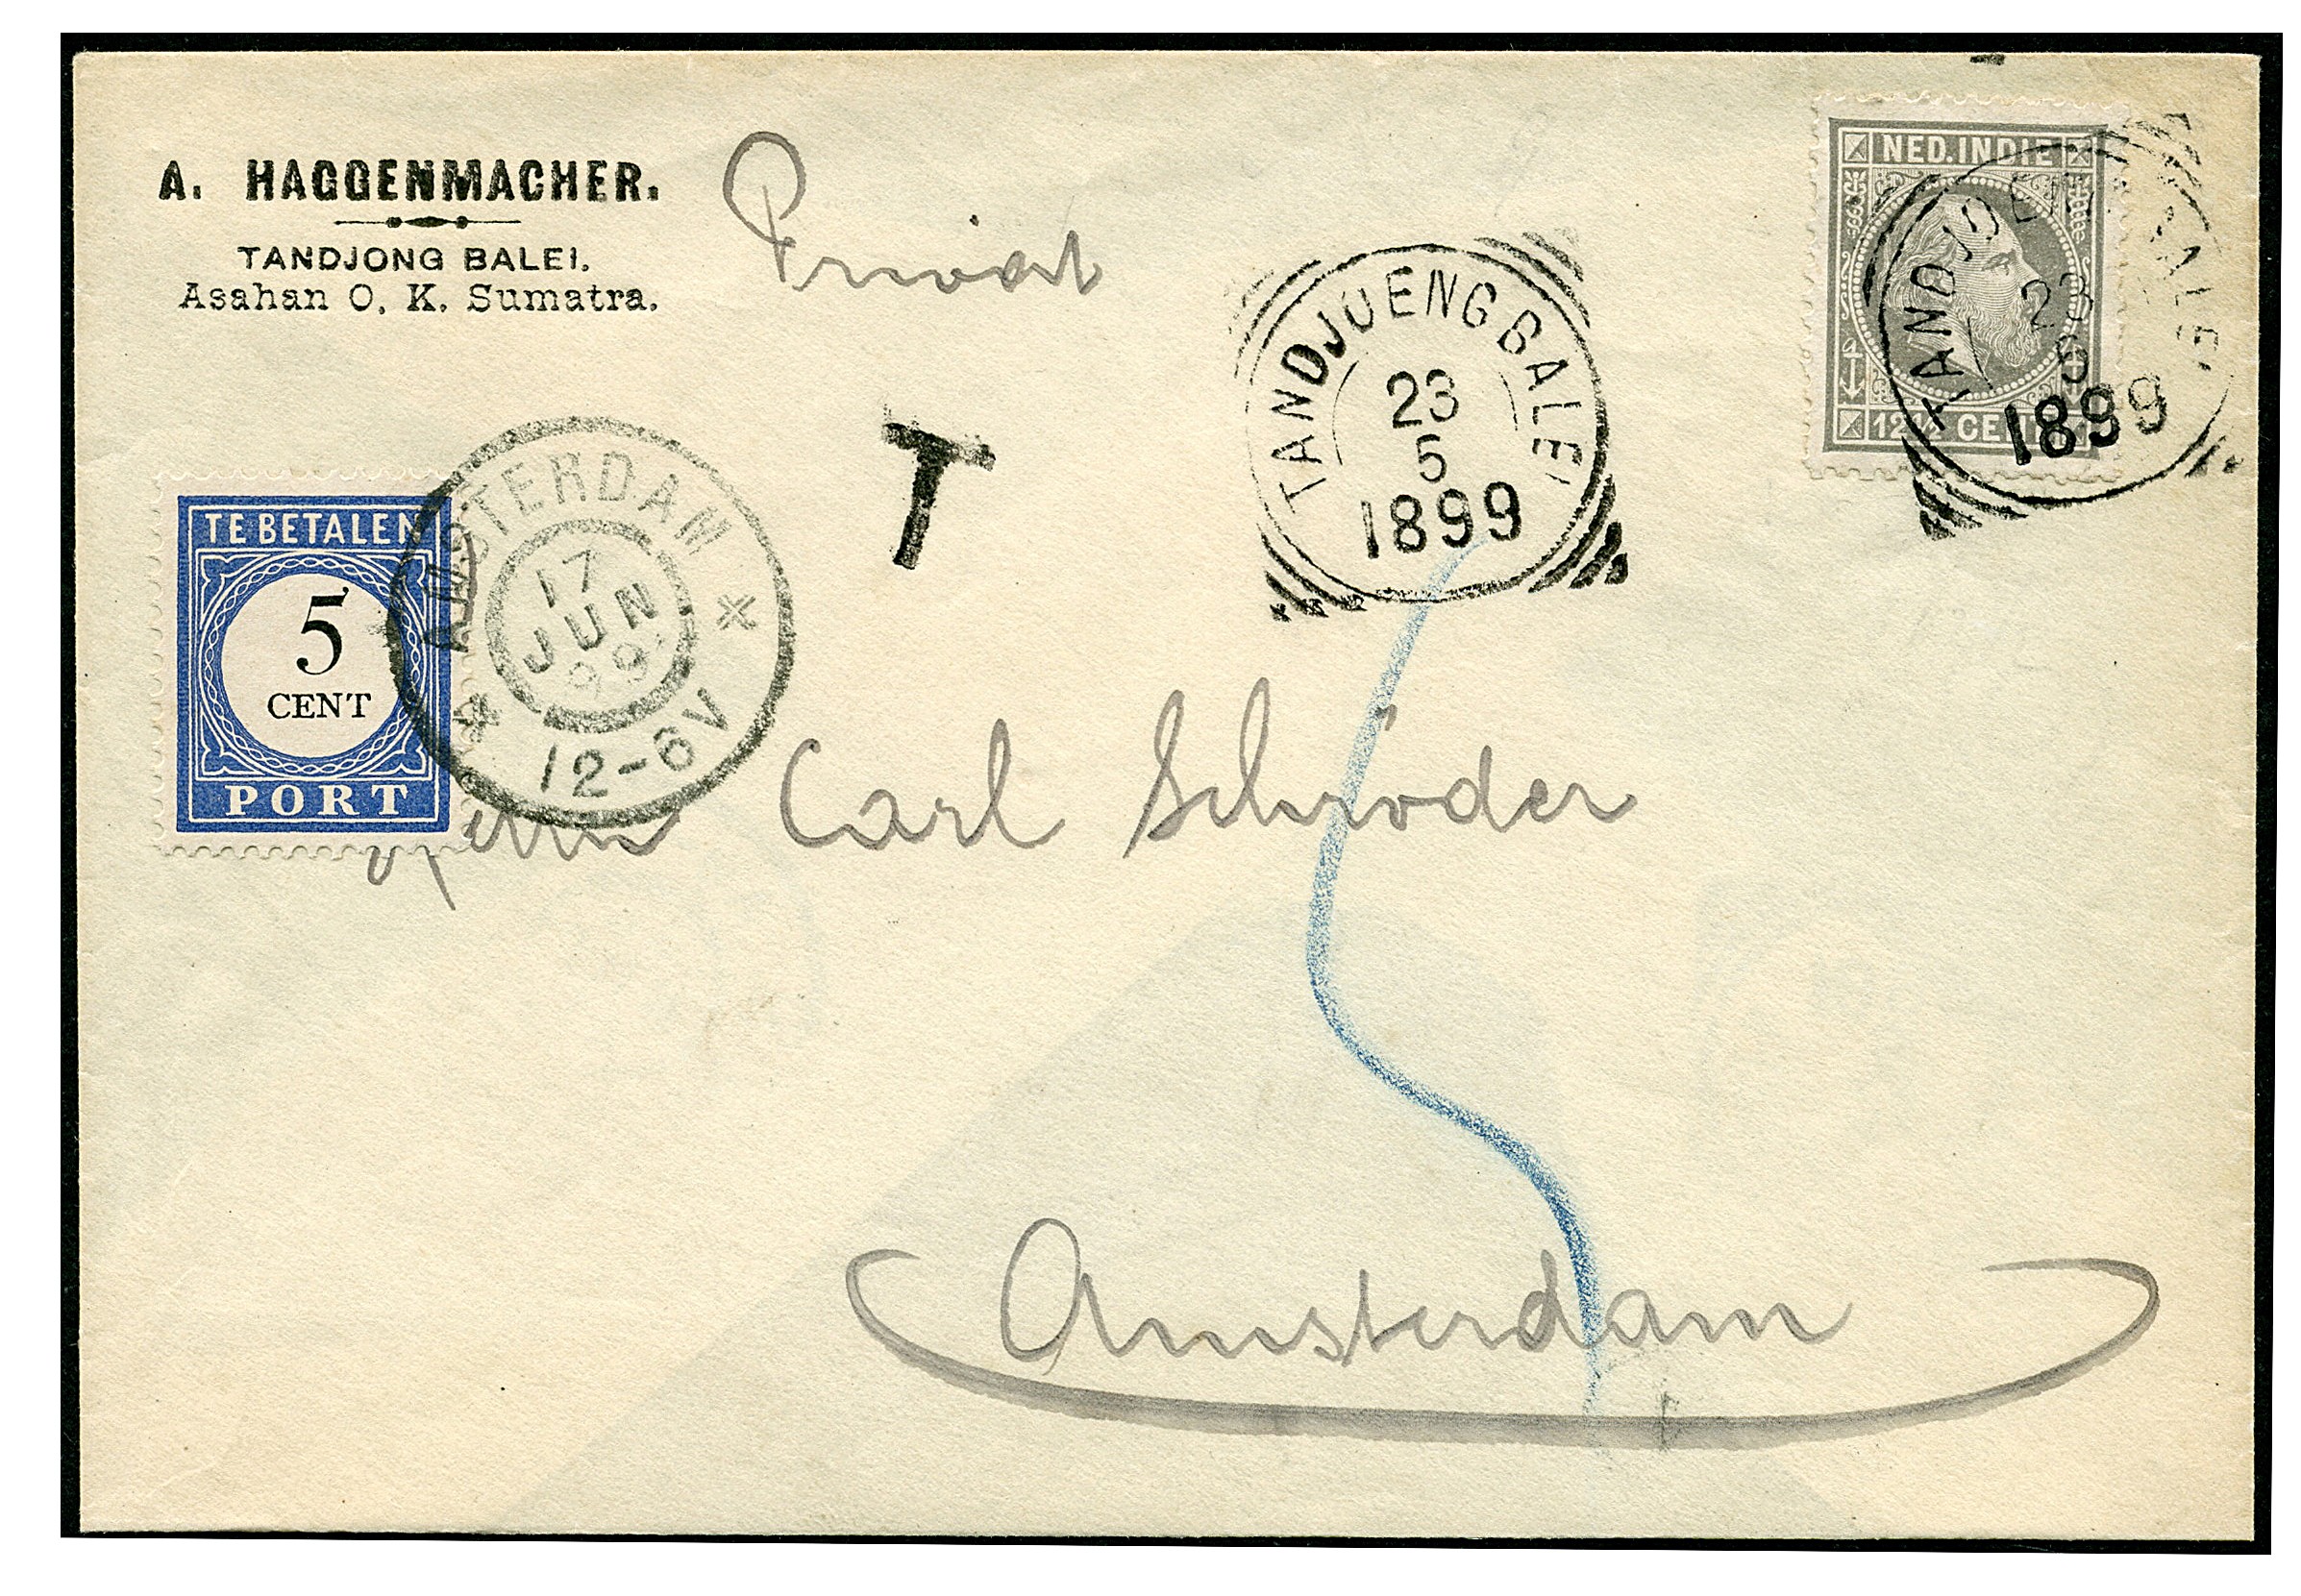 A. HAGGENMACHER.
TANDJONG BALEI.
Asahan O. K. Sumatra.
Privat
NED.INDIE
12½ CENT
TANDJOENG BALEI
23
5
1899
TANDJOENG BALEI
23
5
1899
T
TE BETALEN
5
CENT
PORT
AMSTERDAM
17
JUN
99
12-6V
Herrn Carl Schröder
Amsterdam